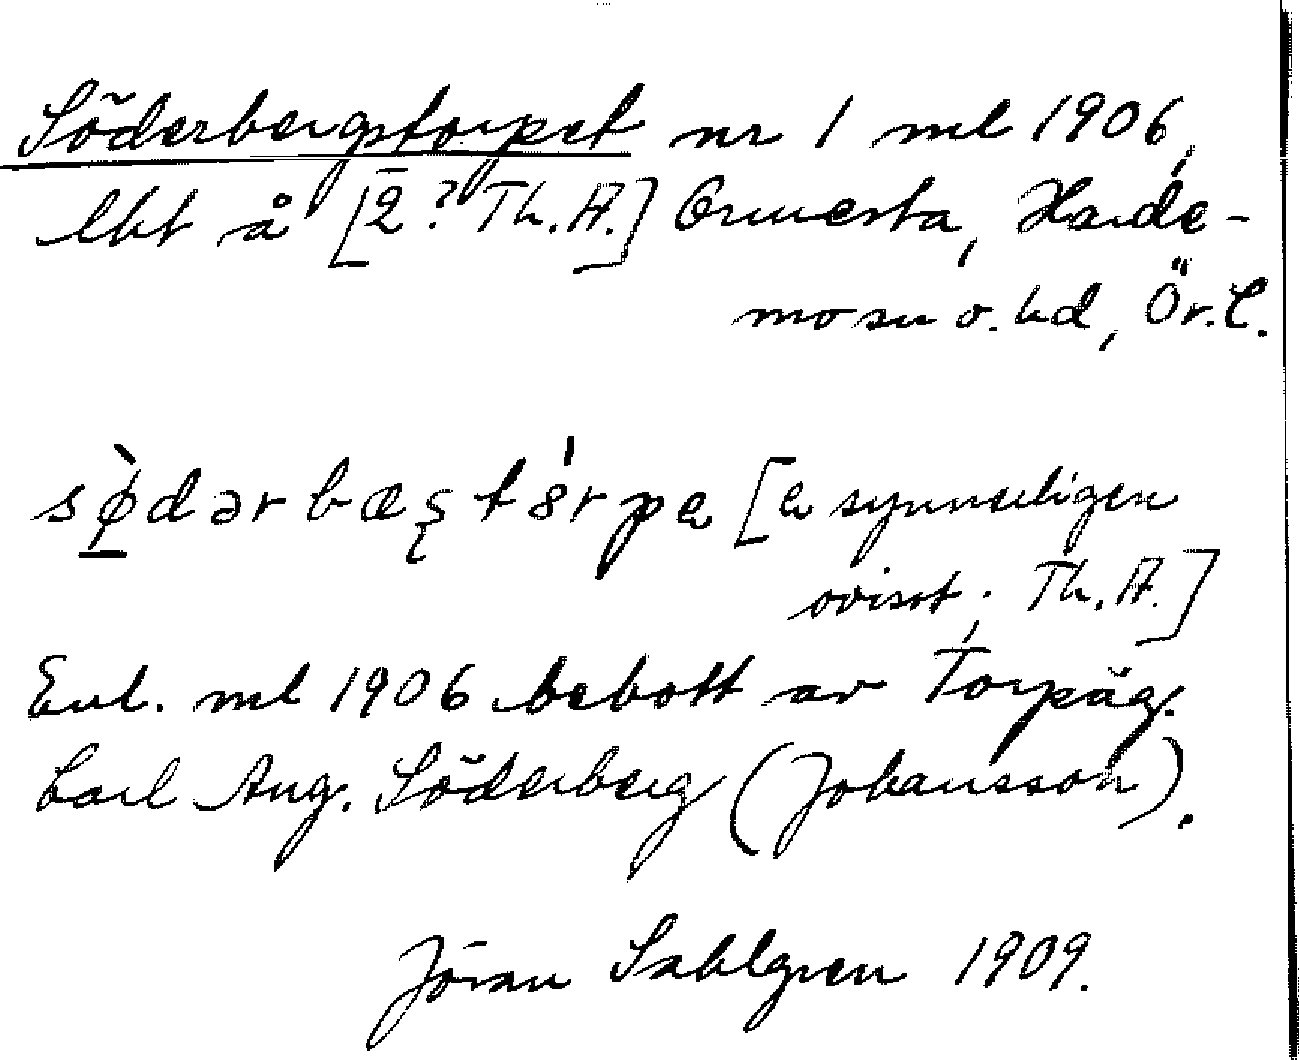 Söderbergstorpet nr 1 ml 1906,
lht å [2̄? Th. A.] Ormesta, Harde-
mo sn o. hd, Ör. l.
sø̀dərbæʂtɵ́rpe [e synneligen
ovisst; Th. A.]
Enl. ml 1906 bebott av Torpäg.
Carl Aug. Söderberg (Johansson).
Jöran Sahlgren 1909.